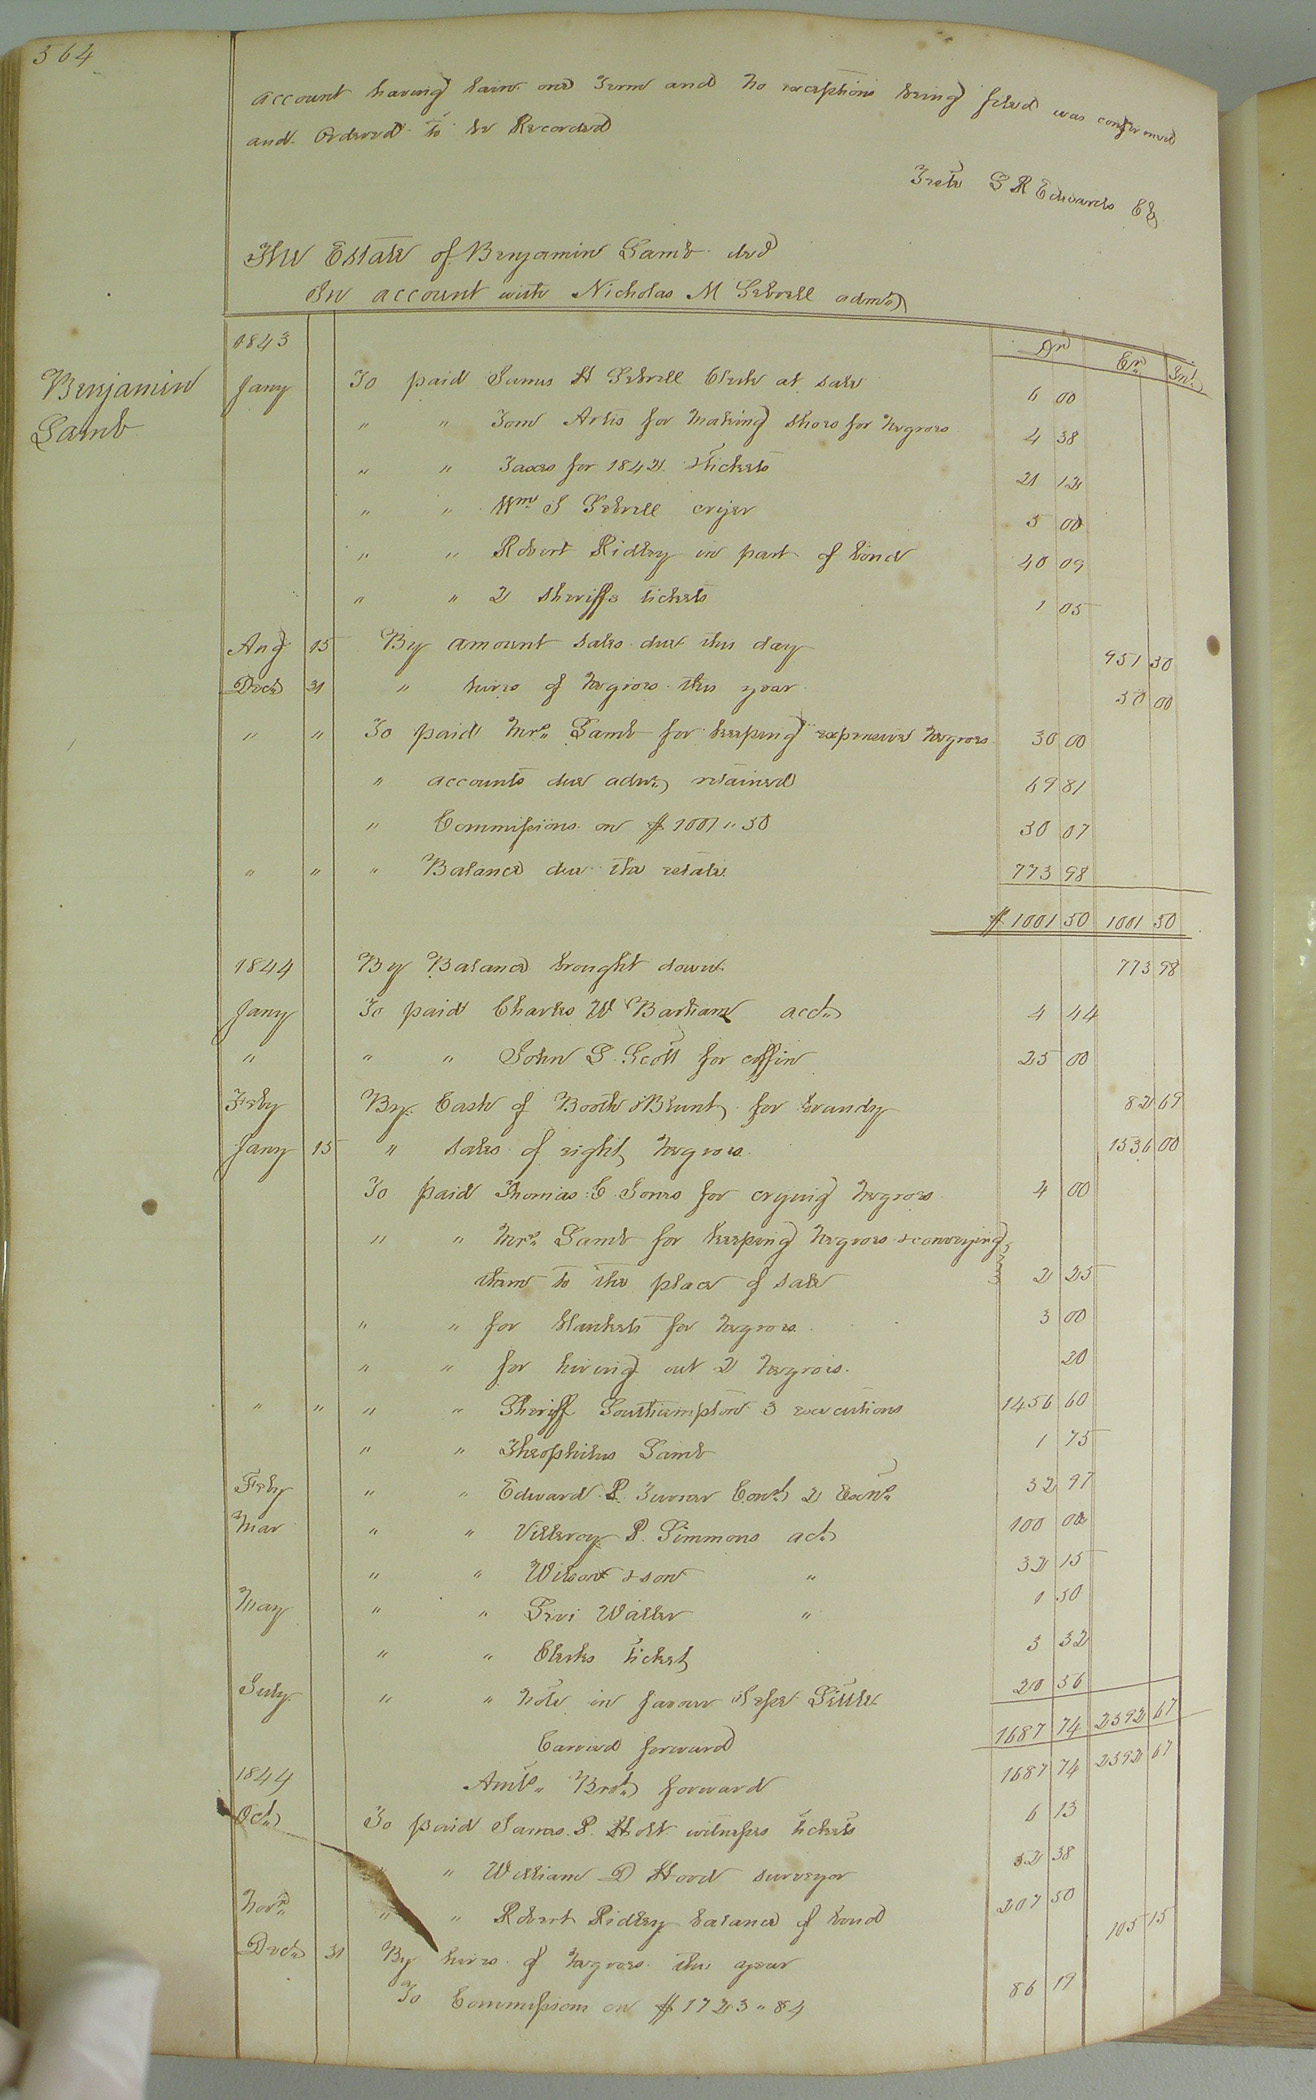 364
account having lain one Term and no exceptions being filed was confirmed
and Ordered to be Recorded
Teste L R Edwards Clk
The Estate of Benjamin Lamb decd
In account with Nicholas M Sebrell admr
Benjamin
Lamb
1843 Dr Cr Int.
Jany To paid James H Sebrell Clerk at sale 6 00
" " Tom Artis for making shoes for negroes 4 38
" " Taxes for 1842 & tickets 21 12
" " Wm J Sebrell cryer 5 00
" " Robert Ridley in part of bond 40 09
" " 2 Sheriffs tickets 1 05
Aug 15 By amount sales due this day 951 50
Decr 31 " hires of negroes this year 50 00
" " To paid Mrs. Lamb for keeping expensive negroes 30 00
" accounts due admr retained 69 81
" Commissions on $1001 " 50 30 07
" " " Balance due the estate 773 98
$ 1001 50 1001 50
1844 By Balance brought down 773 98
Jany To paid Charles W Barham acct 4 44
" " " John S. Scott for coffin 25 00
Feby By Cash of Booth & Blunt for brandy 82 69
Jany 15 " sales of eight negroes 1536 00
To paid Thomas C Jones for crying negroes 4 00
" " Mrs. Lamb for keeping negroes & conveying
them to the place of sale 2 25
" " for blankets for negroes 3 00
" " for hireing out 2 negroes. 20
" " " " Sheriff Southampton 3 executions 1456 60
" " Theophilus Lamb 1 75
Feby " " Edward P. Turner Const 2 Exns 32 97
Mar " " Villeroy P. Simmons act 100 00
" " Wilson & son " 32 15
May " " Levi Waller " 1 50
" " Clerks ticket 3 32
July " " note in favour Jesse Little 20 56
Carried forward 1687 74 2392 67
1844 Amts. Brot forward 1687 74 2392 67
Oct To paid James P. Holt witness tickets 6 13
" " William D Hood surveyor 32 38
Novr " " Robert Ridley balance of bond 207 50
Decr 31 By hires of negroes this year 105 15
To Commissions on $1723 " 84 86 19